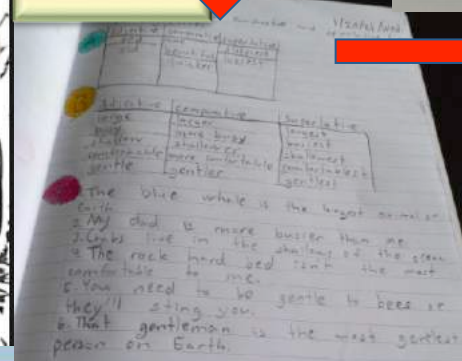 adjective comparative superlative
old oldest
adjective comparative superlative
large larger largest
busy more busy busiest
shallow shallower shallowest
comfortable more comfortable comfortablest
gentle gentler gentlest
The blue whale is the largest animal on
Earth.
2. My dad is more busier than me.
3. Crabs live in the shallows of the ocean
4. The rock hard bed isn't the most
comfortable to me.
5. You need to be gentle to bees or
they'll sting you.
6. That gentleman is the most gentlest
person on Earth.